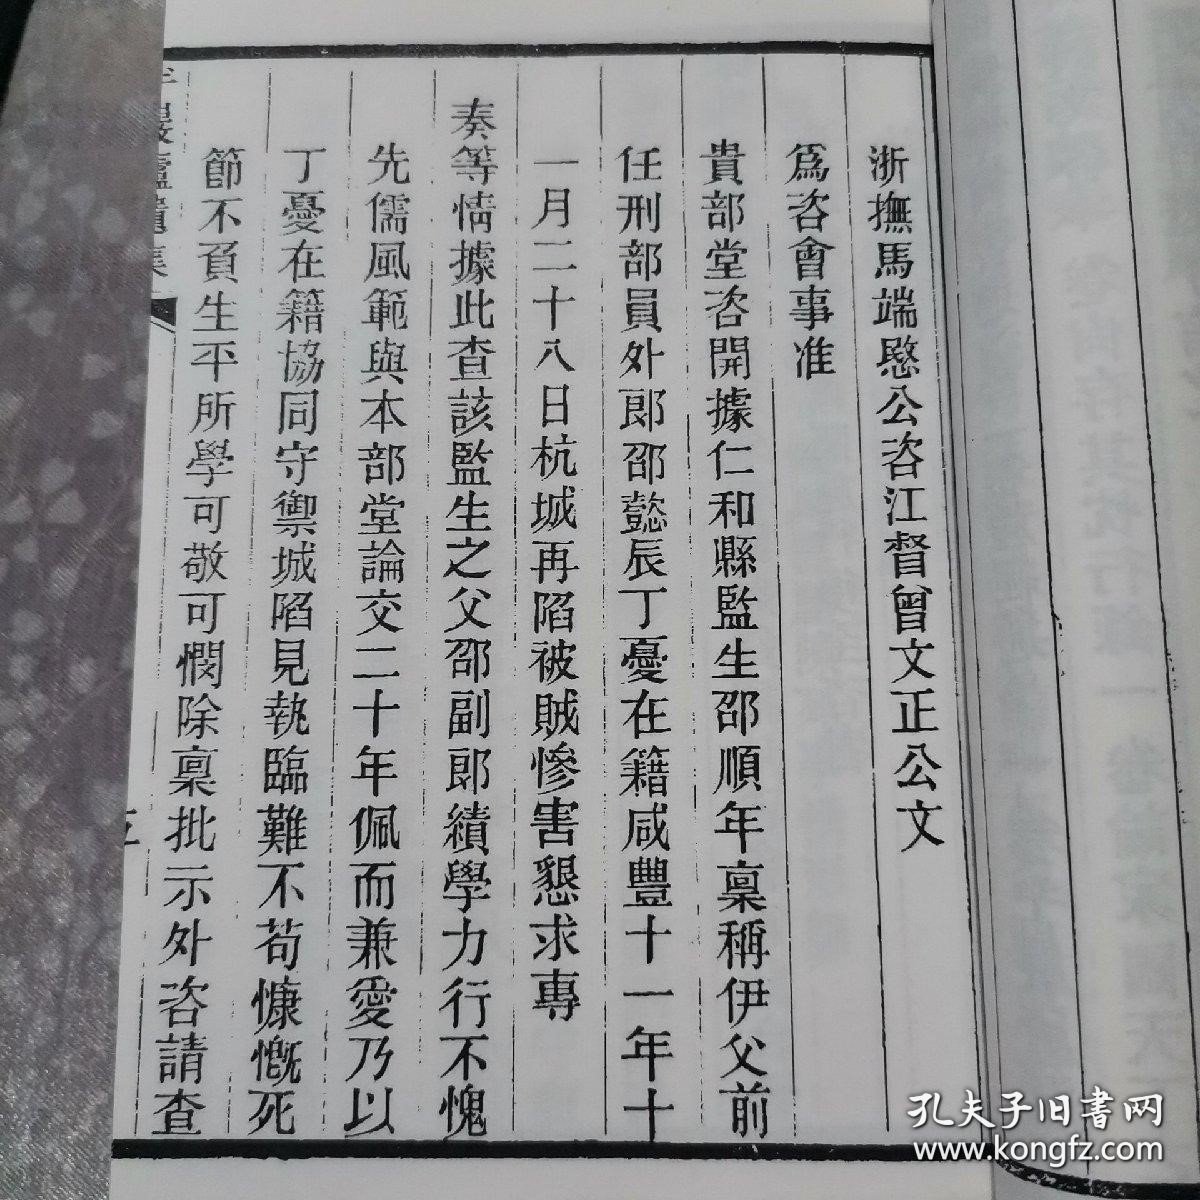 浙撫馬端愍公咨江督曾文正公文
爲咨會事准
貴部堂咨開據仁和縣監生邵順年稟稱伊父前
任刑部員外郎邵懿辰丁憂在籍咸豐十一年十
一月二十八日杭城再陷被賊慘害懇求專
奏等情據此查該監生之父邵副郎績學力行不愧
先儒風範與本部堂論交二十年佩而兼愛乃以
丁憂在籍協同守禦城陷見執臨難不苟慷慨死
節不負生平所學可敬可憫除稟批示外咨請查
孔夫子旧书网
www.kongfz.com